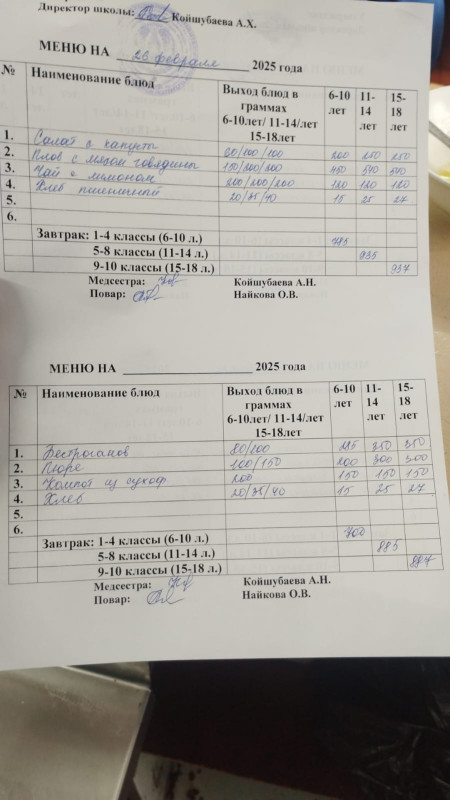 Директор школы: Койшубаева А.Х.
МЕНЮ НА 26 февраля 2025 года
№ Наименование блюд Выход блюд в граммах 6-10лет/ 11-14/лет 15-18лет 6-10 лет 11-14 лет 15-18 лет
1. Салат с капусты 60/100/100 200 250 250
2. Плов с мясом говядины 150/200/200 450 540 540
3. Чай с лимоном 200/200/200 120 120 120
4. Хлеб пшеничный 20/35/40 15 25 27
5.
6.
Завтрак: 1-4 классы (6-10 л.) 785
5-8 классы (11-14 л.) 935
9-10 классы (15-18 л.) 937
Медсестра: Койшубаева А.Н.
Повар: Найкова О.В.
МЕНЮ НА 2025 года
№ Наименование блюд Выход блюд в граммах 6-10лет/ 11-14/лет 15-18лет 6-10 лет 11-14 лет 15-18 лет
1. Бестроганов 80/100 350 350
2. Пюре 100/150 200 300 300
3. Компот из сухоф 200 150 150 150
4. Хлеб 20/35/40 15 25 27
5.
6.
Завтрак: 1-4 классы (6-10 л.)
5-8 классы (11-14 л.) 885
9-10 классы (15-18 л.) 887
Медсестра: Койшубаева А.Н.
Повар: Найкова О.В.